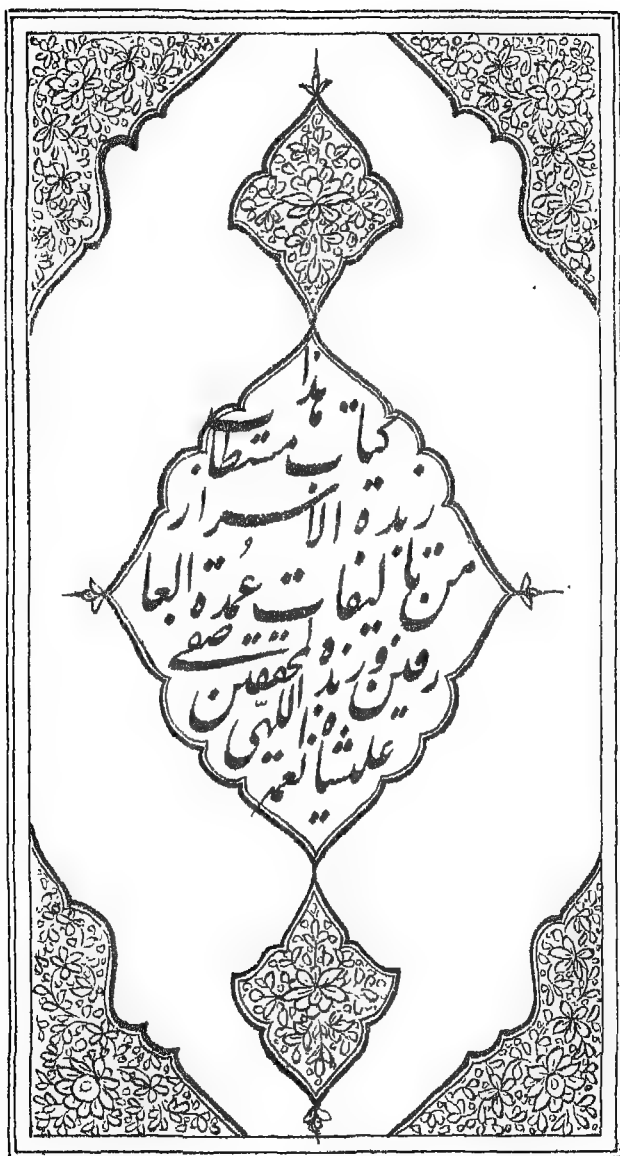 هذا
کتاب مستطاب
زبدة الاسرار
من تالیفات عمدة العا
رفین و زبدة المحققین صفی
علیشاه نعمة اللهی